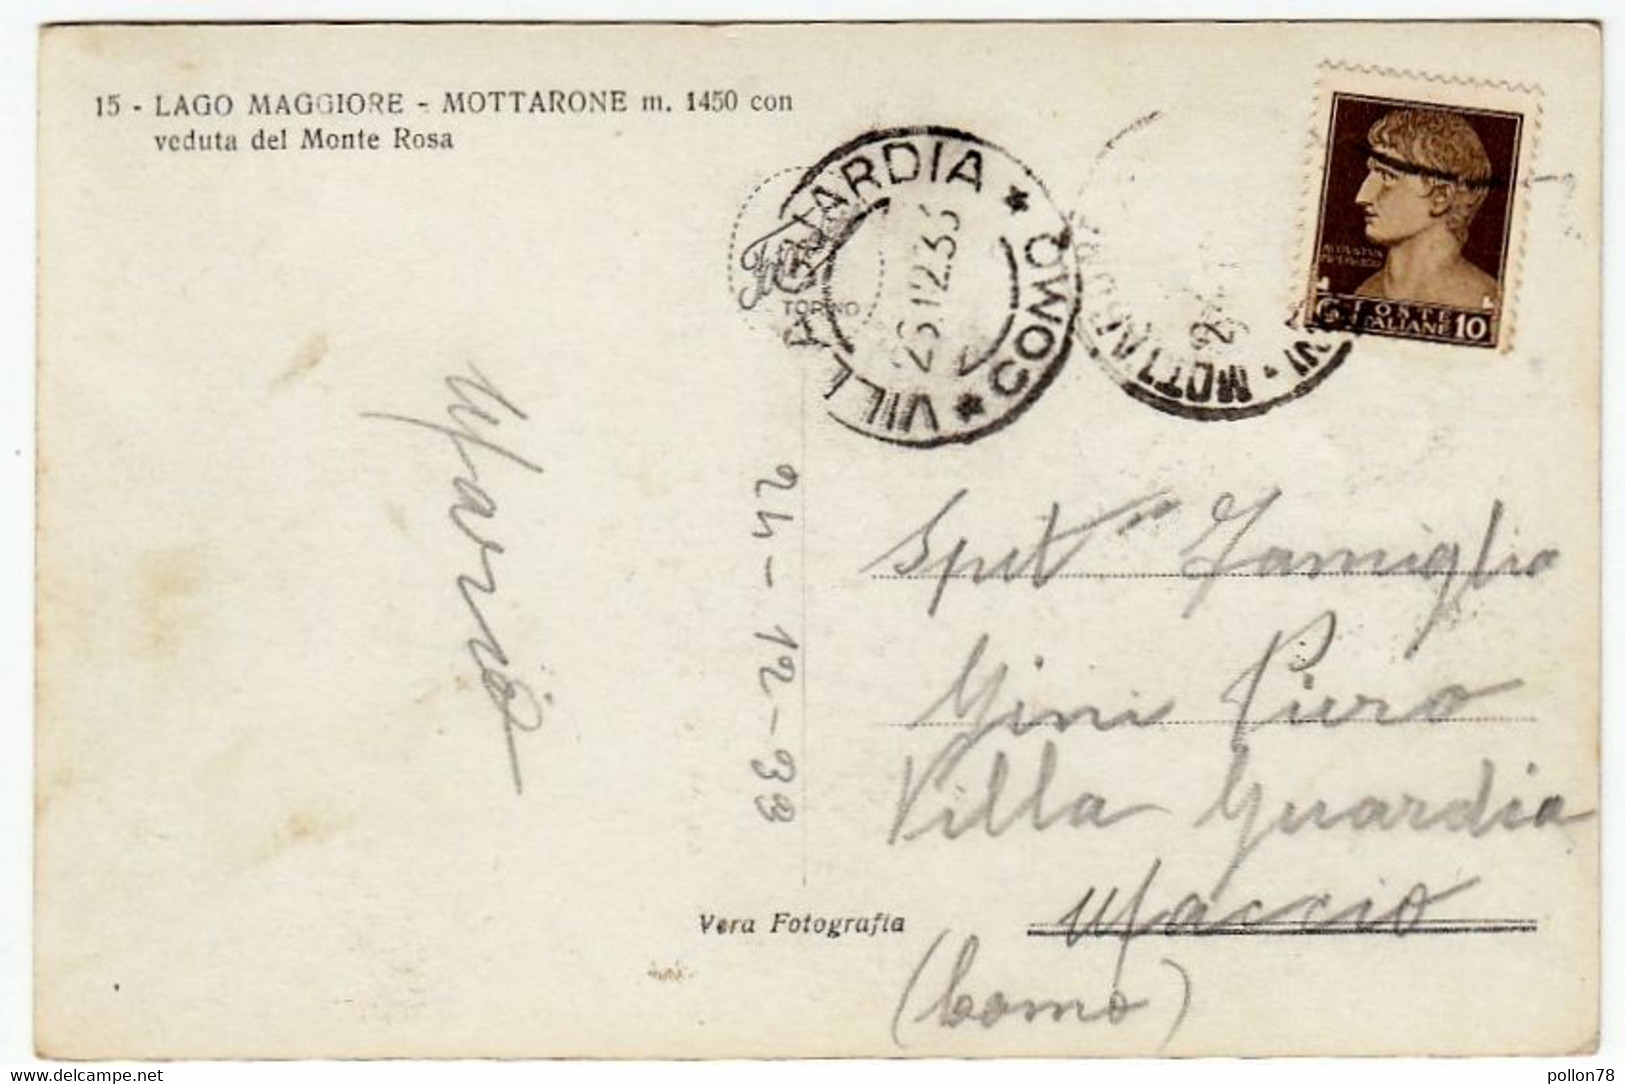 15 - LAGO MAGGIORE - MOTTARONE m. 1450 con
veduta del Monte Rosa
VILLA GUARDIA * COMO *
26.12.33
TORINO
POSTE
ITALIANE 10
Mario
24-12-33
Spet Famiglia
Gini Piero
Villa Guardia
Maccio
(Como)
Vera Fotografia
delcampe.net
pollon78